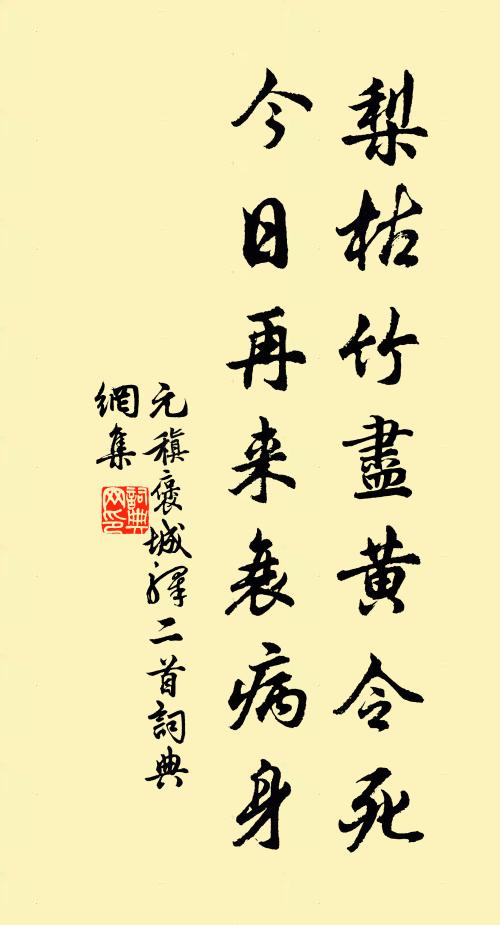 梨枯竹盡黄令死
今日再来衰病身
元稹褒城驛二首詞典
網集
詞典
网印